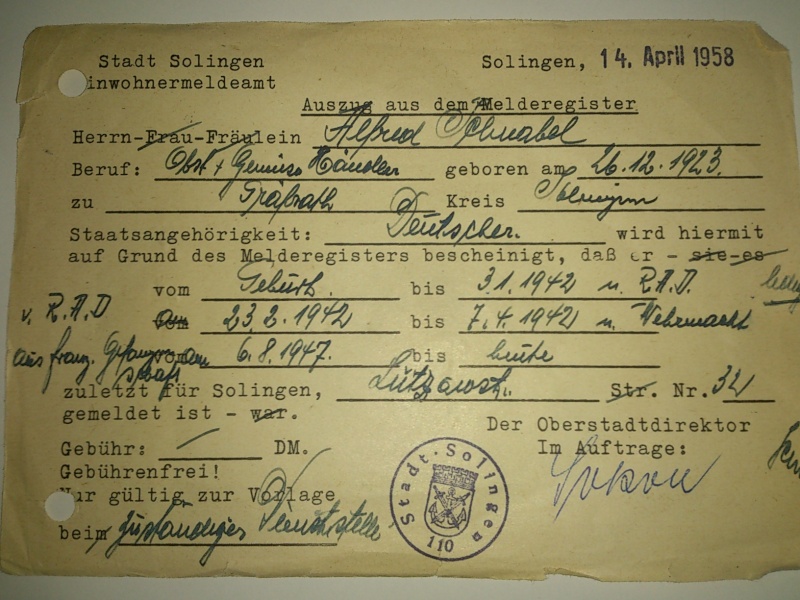 Stadt Solingen
inwohnermeldeamt
Solingen, 14. April 1958
Auszug aus dem Melderegister
Herrn-Frau-Fräulein Alfred Schnabel
Beruf: Obst + Gemüse Händler geboren am 26.12.1923.
zu Gräfrath Kreis Solingen
Staatsangehörigkeit: Deutscher. wird hiermit
auf Grund des Melderegisters bescheinigt, daß er - sie-es
vom Geburt. bis 3.1.1942 n. R.A.D.
v. R.A.D am 23.2.1942 bis 7.4.1942 n. Wehrmacht
aus franz. Gefangenschaft am 6.8.1947. bis heute
zuletzt für Solingen, Lützowstr. Str. Nr. 32
gemeldet ist - war.
Der Oberstadtdirektor
Gebühr: / DM.
Im Auftrage:
Gebührenfrei!
Nur gültig zur Vorlage
beim zuständiges Dienststelle
Stadt Solingen
110